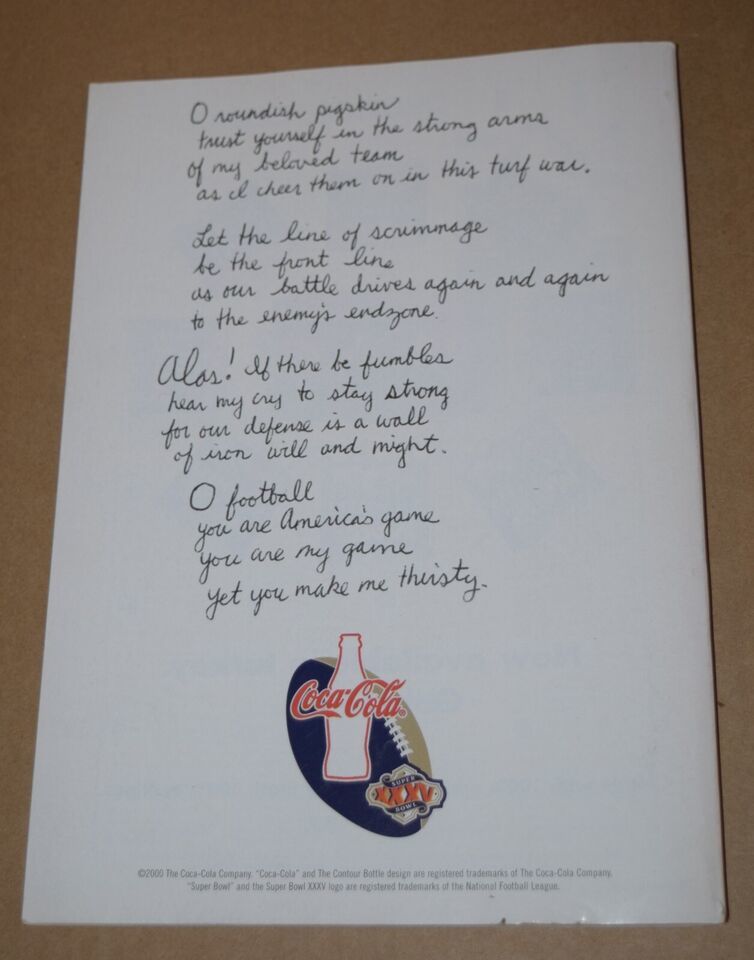 O roundish pigskin
trust yourself in the strong arms
of my beloved team
as I cheer them on in this turf war.
Let the line of scrimmage
be the front line
as our battle drives again and again
to the enemy's endzone.
Alas! If there be fumbles
hear my cry to stay strong
for our defense is a wall
of iron will and might.
O football
you are America's game
you are my game
yet you make me thirsty.
Coca-Cola®
SUPER
XXXV
BOWL
©2000 The Coca-Cola Company. "Coca-Cola" and The Contour Bottle design are registered trademarks of The Coca-Cola Company.
"Super Bowl" and the Super Bowl XXXV logo are registered trademarks of the National Football League.